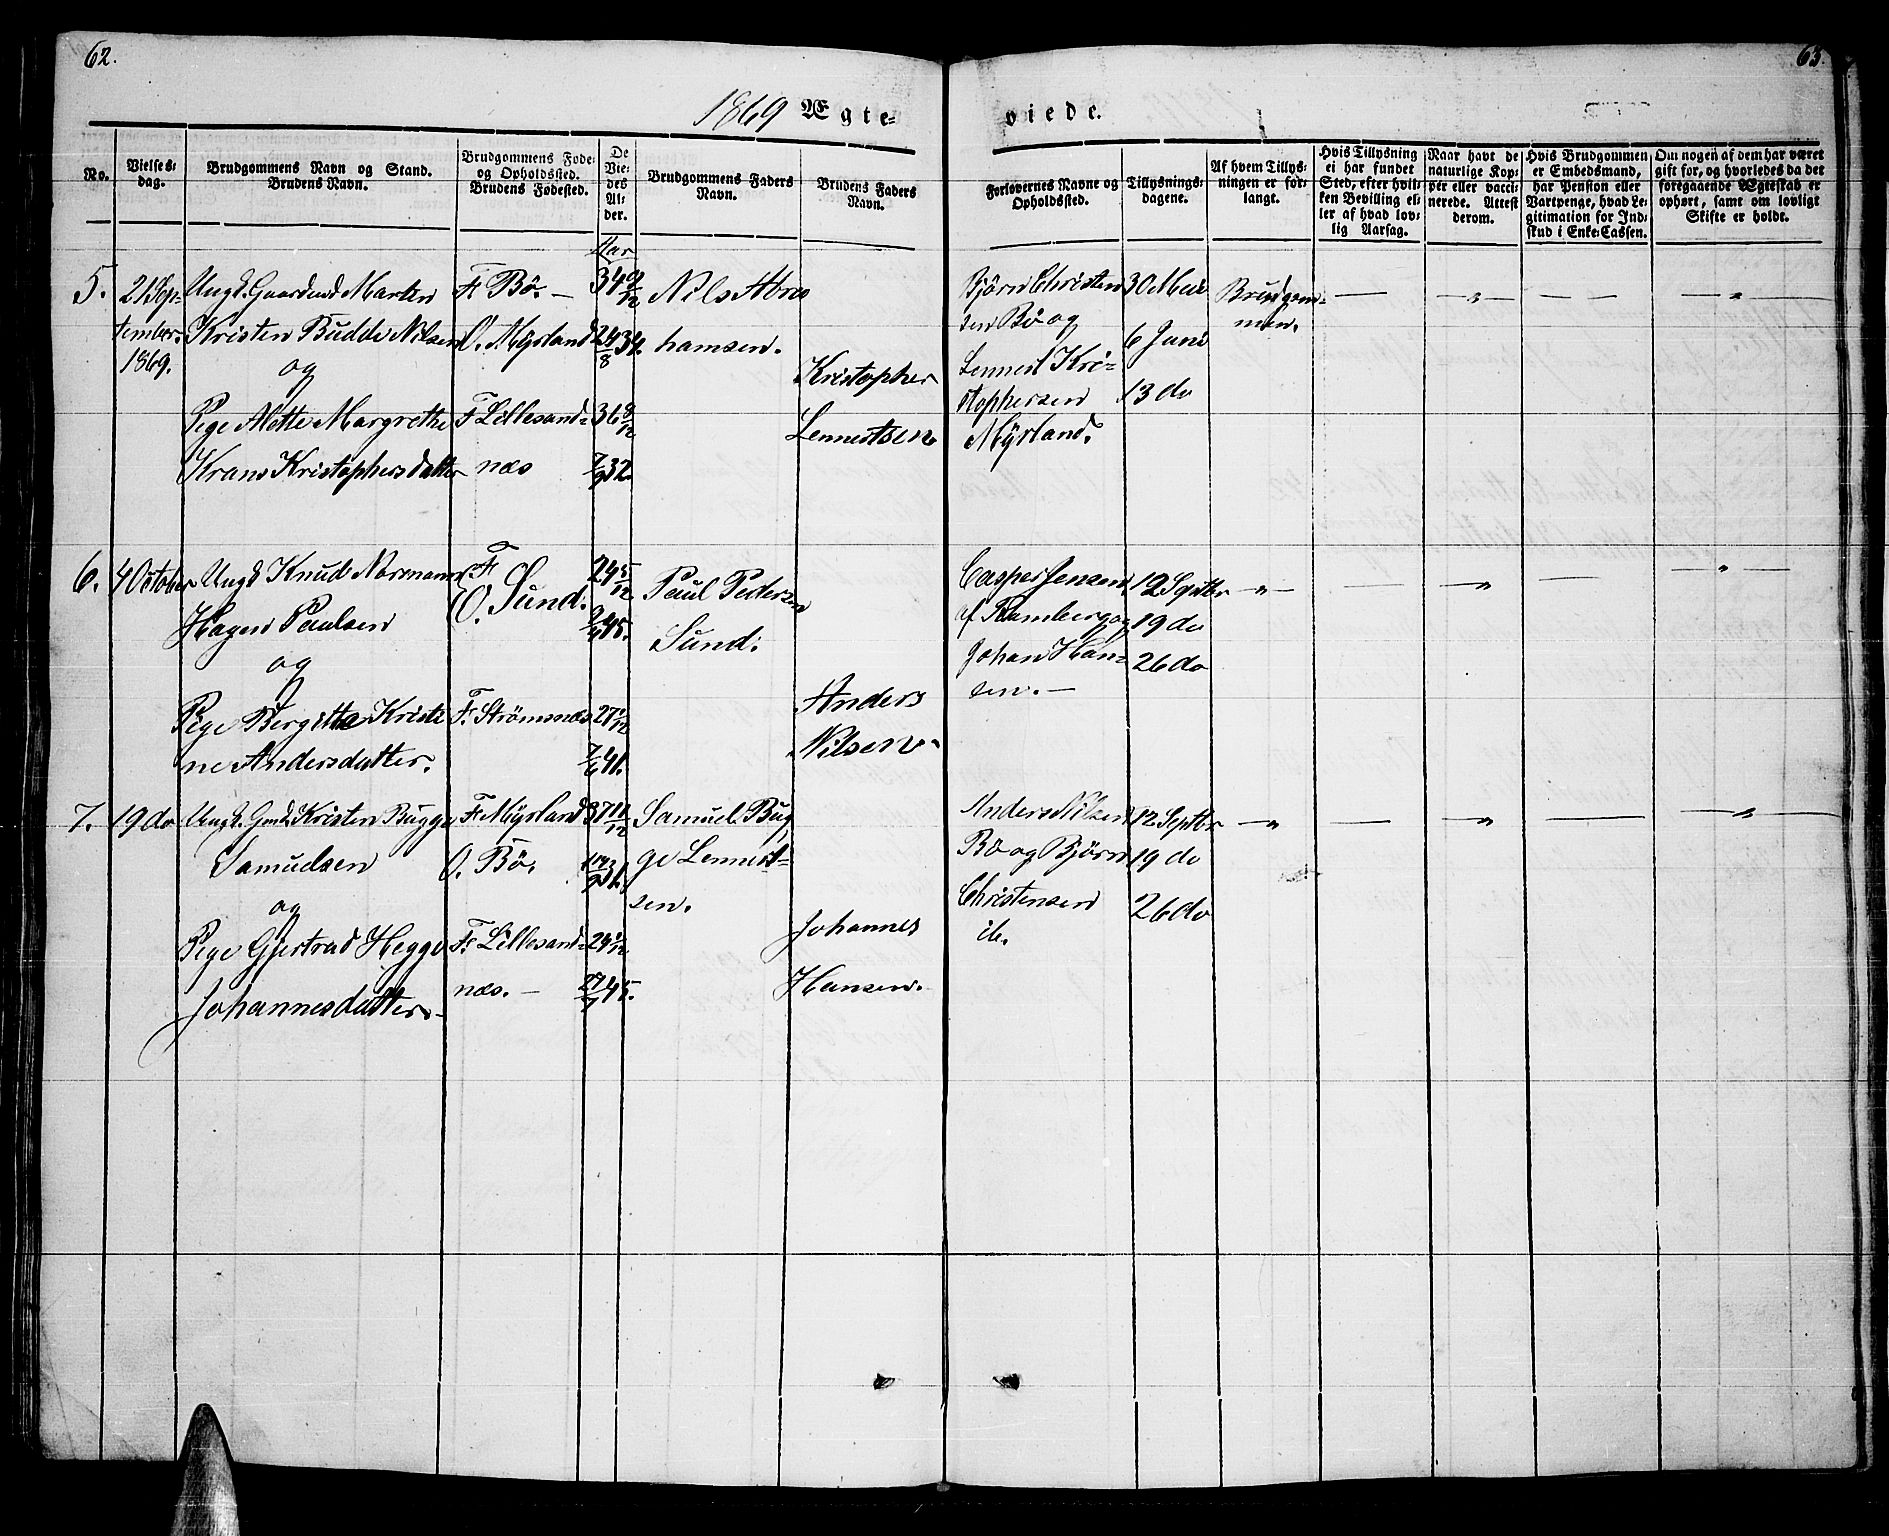 62.
63.
1869 Ægte=
viede.
No.
Vielses=
dag.
Brudgommens Navn og Stand.
Brudens Navn.
Brudgommens Føde=
og Opholdssted.
Brudens Fødested.
De
Vie=
des
Al=
der.
Brudgommens Faders
Navn.
Brudens Faders
Navn.
Forlovernes Navne og
Opholdssted.
Tillysnings=
dagene.
Af hvem Tillys=
ningen er for=
langt.
Hvis Tillysning
ei har fundet
Sted, efter hvil=
ken Bevilling el=
ler af hvad lov=
lig Aarsag.
Naar havt de
naturlige Kop=
per eller vacci=
nerede. Attest
derom.
Hvis Brudgommen
er Embedsmand,
har Pension eller
Vartpenge, hvad Le=
gitimation for Ind=
skud i Enke=Cassen.
Om nogen af dem har været
gift før, og hvorledes da det
foregaaende Ægteskab er
ophørt, samt om lovligt
Skifte er holdt.
Aar
5.
21 Sep=
tember
1869.
Ungk. Gaardmd Marten
Kristen Budde Nilsen
og
Pige Alette Margrethe
Krans Kristophersdatter
F. Bø. —
O. Myrland
F. Lillesand=
næs
34 9/12
24/8 34.
36 8/12
7/9 32.
Nils Abra
hamsen.
Kristopher
Lennertsen
Bjørn Christen
sen Bø og
Lennert Kri=
stophersen
Myrland.
30 Mai
6 Juni
13 do
Brudgom=
men.
— „ — „
6.
4 October
Ungk Knud Normann
Hagen Paulsen
og
Pige Bergitta Kristi
ne Andersdatter.
F.
O. Sund.
F. Strømsnæs
24 5/12
45.
27
41.
Paul Pedersen
Sund.
Anders
Nilsen
Casper Jensen
af Ramberg og
Johan Han=
sen. —
12 Septbr
19 do
26 do
— „ — — „ — — „ —
7.
19 do
Ungk. Gmd. Kristen Bugge
Samuelsen
og
Pige Gjertrud Hegge
Johannesdatter.
F. Myrland
O. Bø.
F. Lillesand=
næs. —
37
31.
24
27/7 45.
Samuel Bug
ge Lennert=
sen.
Johannes
Hansen.
Anders Nilsen
Bø og Bjørn
Christensen
ib.
12 Septbr
19 do
26 do
— „ — — „ — — „ —